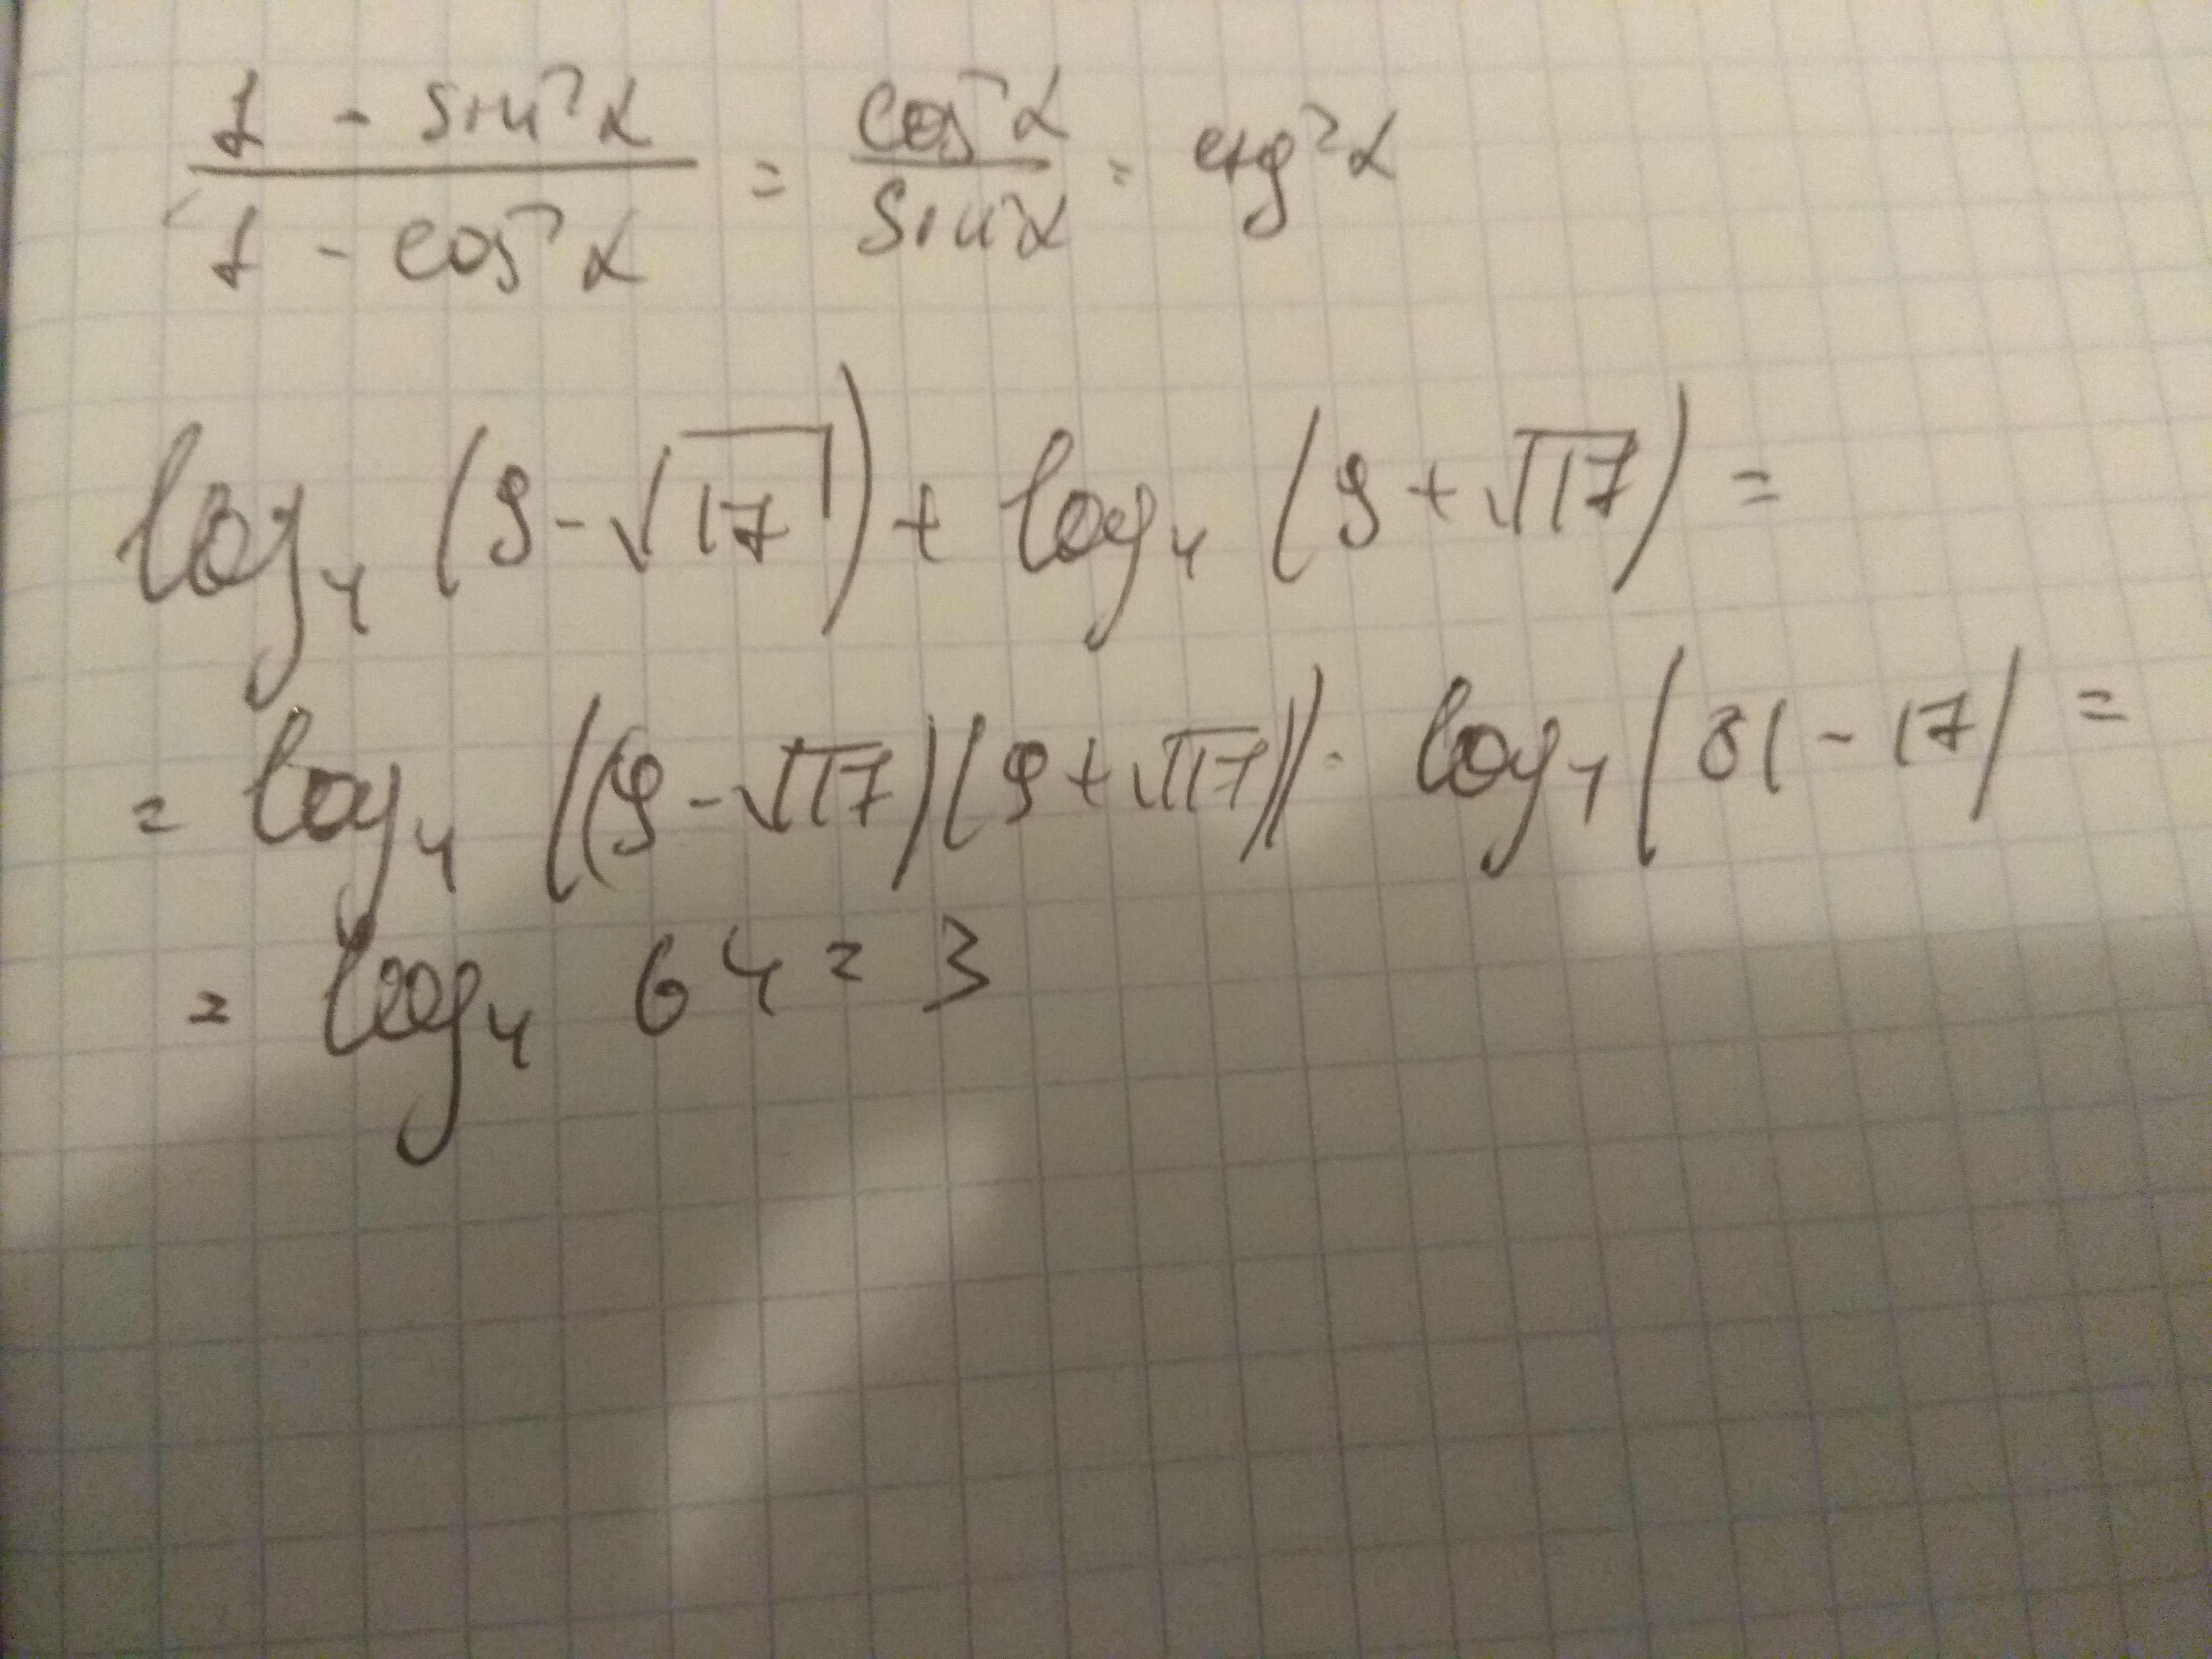 (1 - sin²α)/(1 - cos²α) = cos²α/sin²α = ctg²α
log₄ (9-√17) + log₄ (9+√17) =
= log₄ ((9-√17)(9+√17)) = log₄ (81-17) =
= log₄ 64 = 3